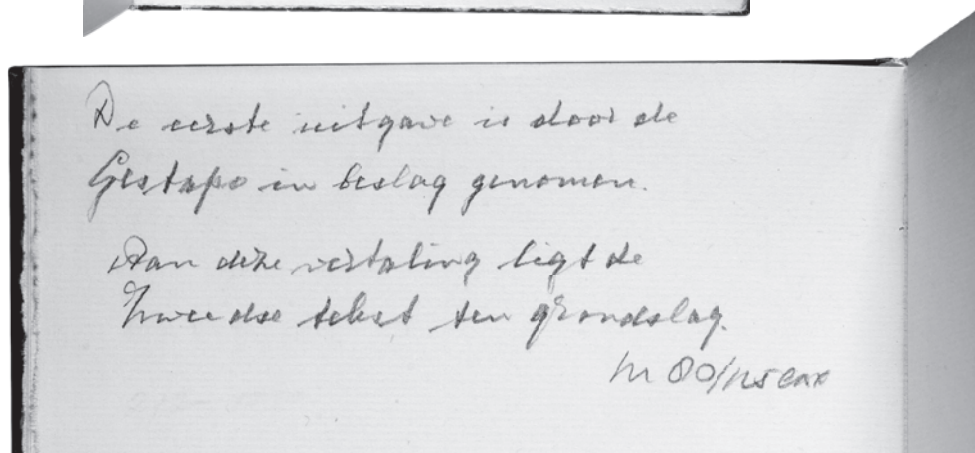 De eerste uitgave is door de
Gestapo in beslag genomen.
Aan deze vertaling ligt de
Zweedse tekst ten grondslag.